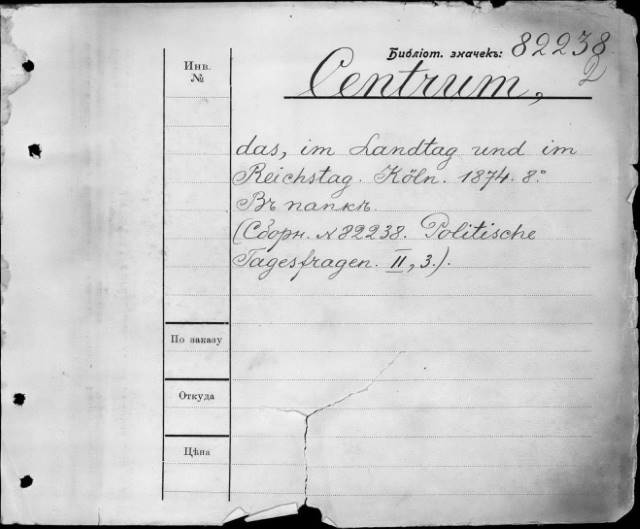 Библіот. значекъ: 82238
2
Centrum,
Инв.
№
das, im Landtag und im
Reichstag. Köln. 1874. 8°
Въ папкѣ.
(Сборн. № 82238. Politische
Tagesfragen. II, 3.).
По заказу
Откуда
Цѣна